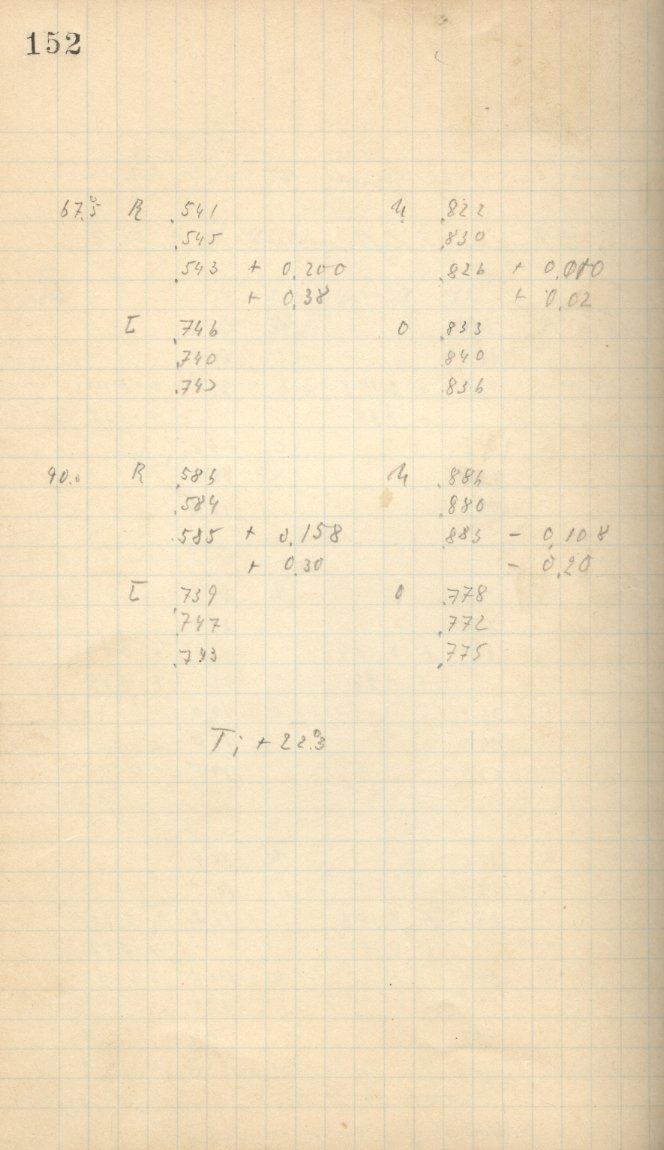 152
67.°5 R .541 U .822
.545 .830
.543 + 0,200 .826 + 0,010
+ 0,38 + 0,02
L .746 O .833
.740 .840
.743 .836
90.0 R .586 U .886
.584 .880
.585 + 0,158 .883 - 0,108
+ 0,30 - 0,20
L .739 O .778
.747 .772
.743 .775
Ti + 22.°3